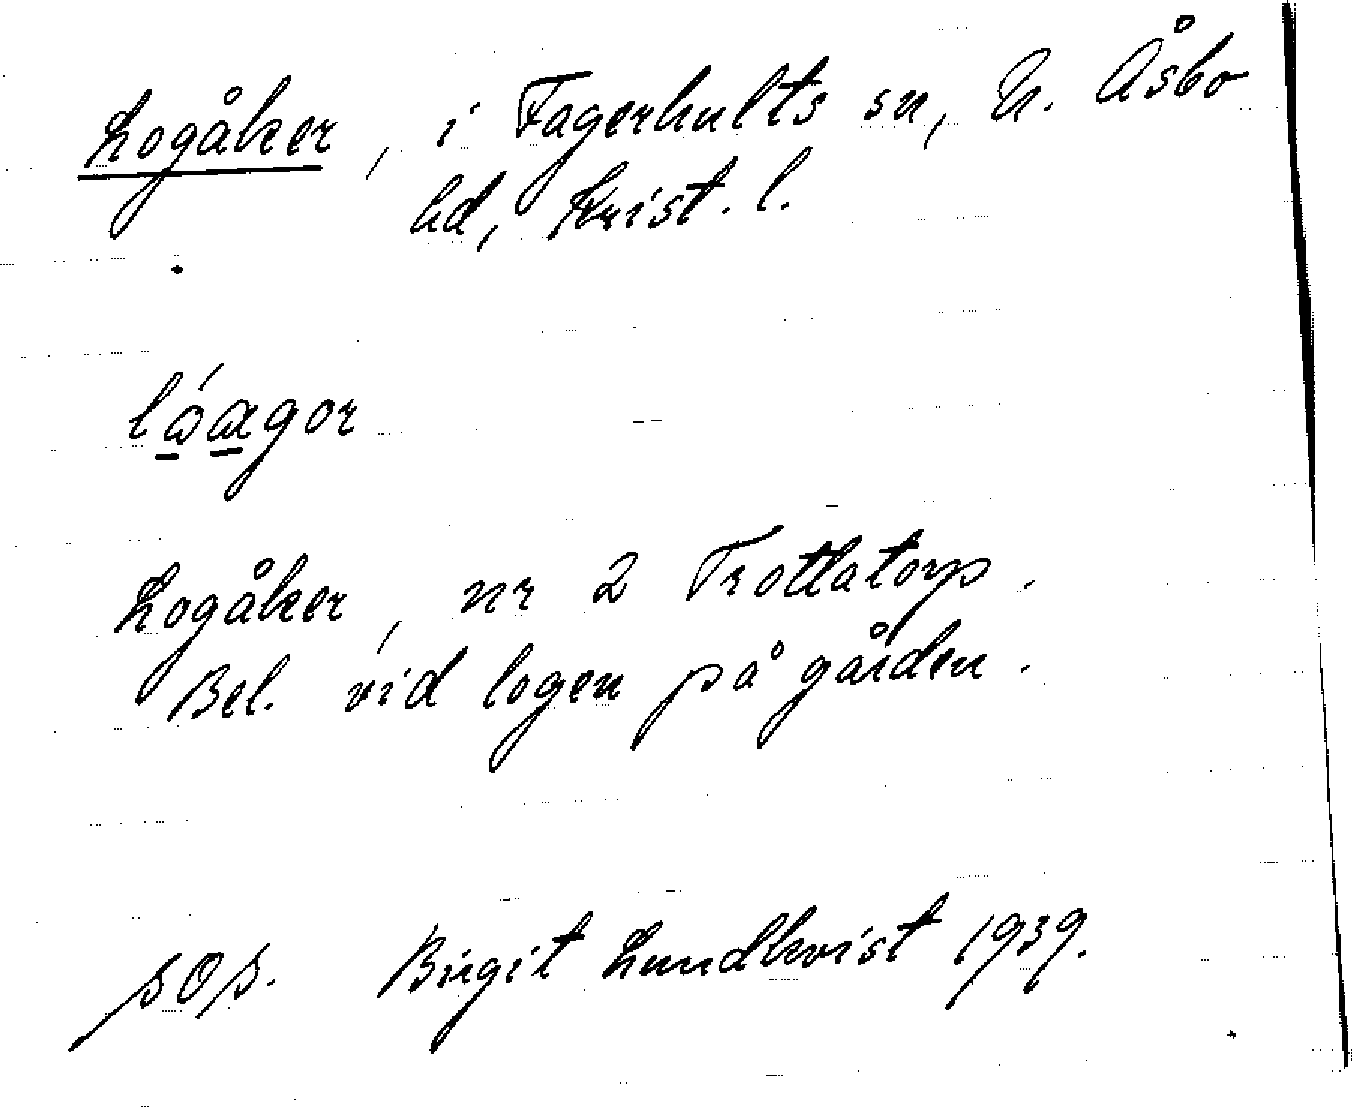 Logåker, i Fagerhults sn, N. Åsbo
hd, Krist. l.
lóagor
Logåker, nr 2 Trottatorp.
Bel. vid logen på gården.
SOS. Birgit Lundkvist 1939.